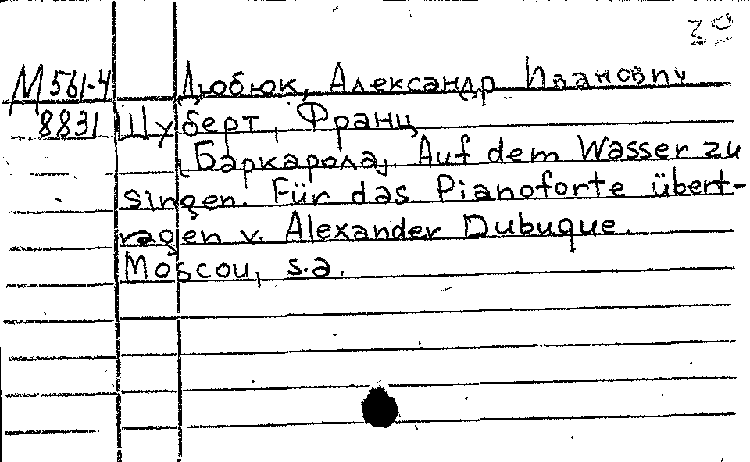 39
М 561-4 Дюбюк, Александр Иванович
8831 Шуберт, Франц
[Баркарола] Auf dem Wasser zu
singen. Für das Pianoforte übert-
ragen v. Alexander Dubuque.
Moscou, s.a.